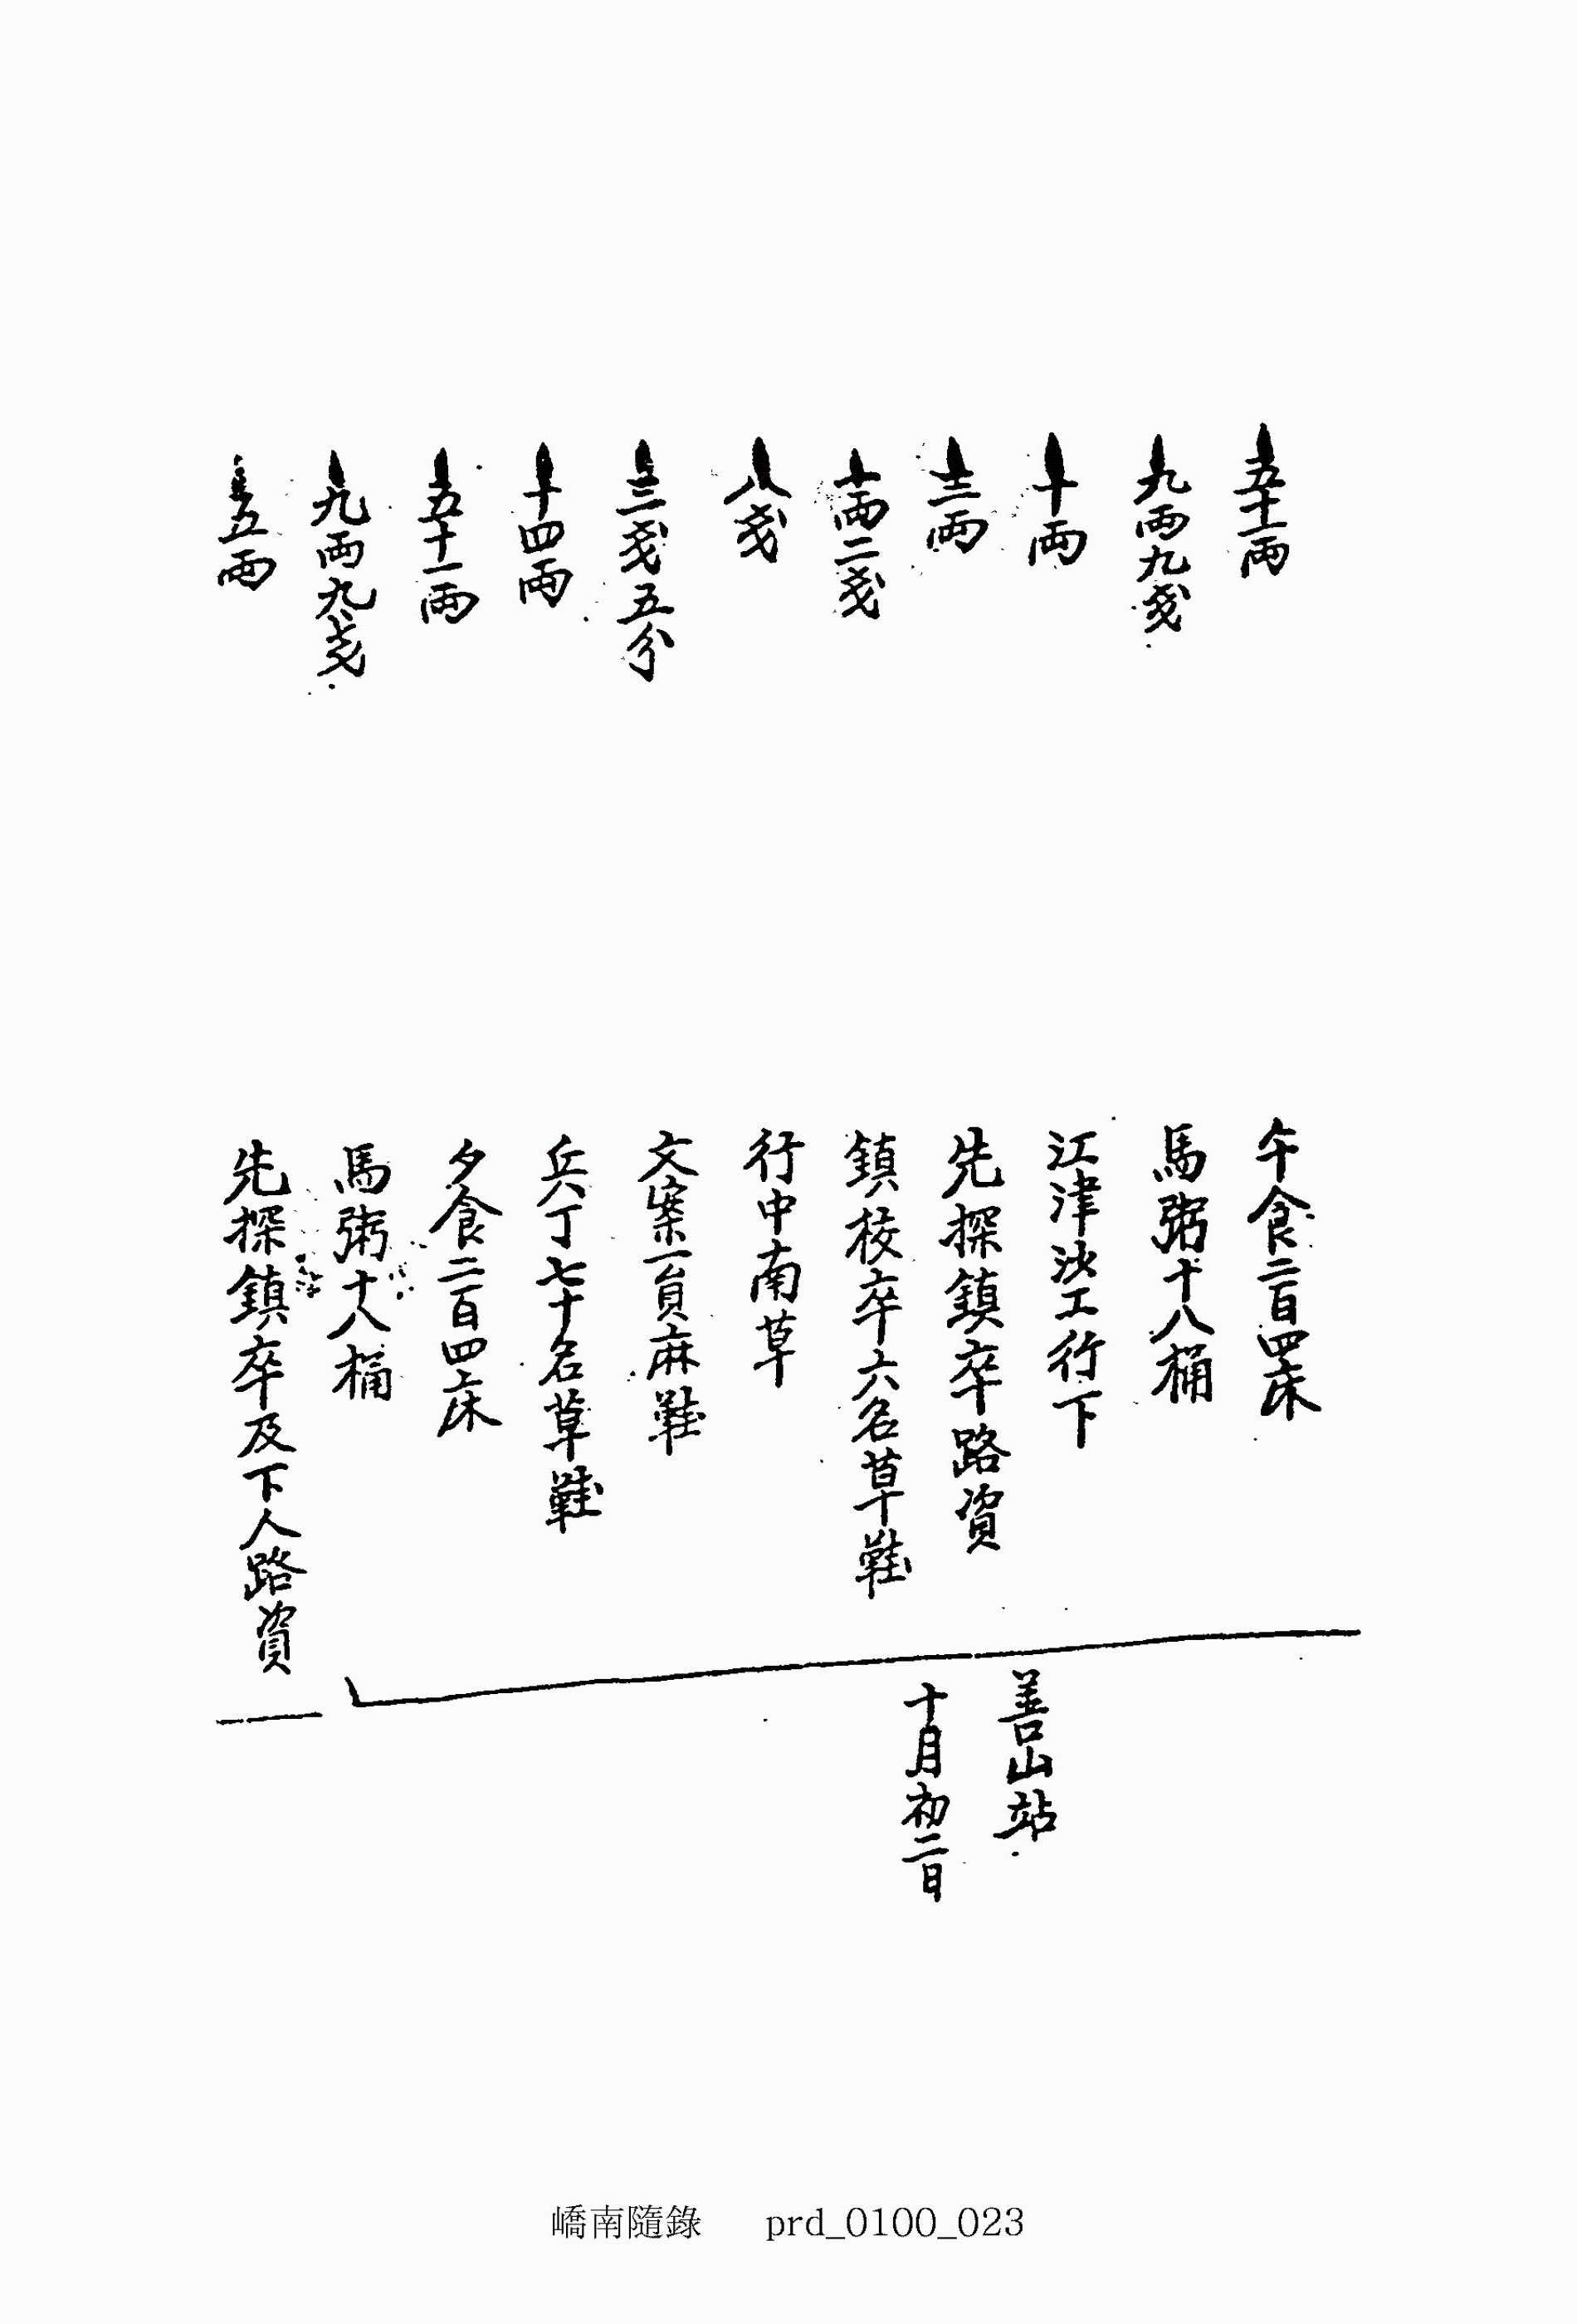 五十一兩 午食二百四床
九兩九戔 馬粥十八桶
十兩 江津沙工行下
三兩 先探鎮卒路資
一兩二戔 鎮校卒六名草鞋
八戔 行中南草
三戔五分 文案一員麻鞋
十四兩 兵丁七十名草鞋
五十一兩 夕食二百四床
九兩九戔 馬粥十八桶
善山站
十月初二日
五兩 先探鎮卒及下人路資
嶠南隨錄 prd_0100_023